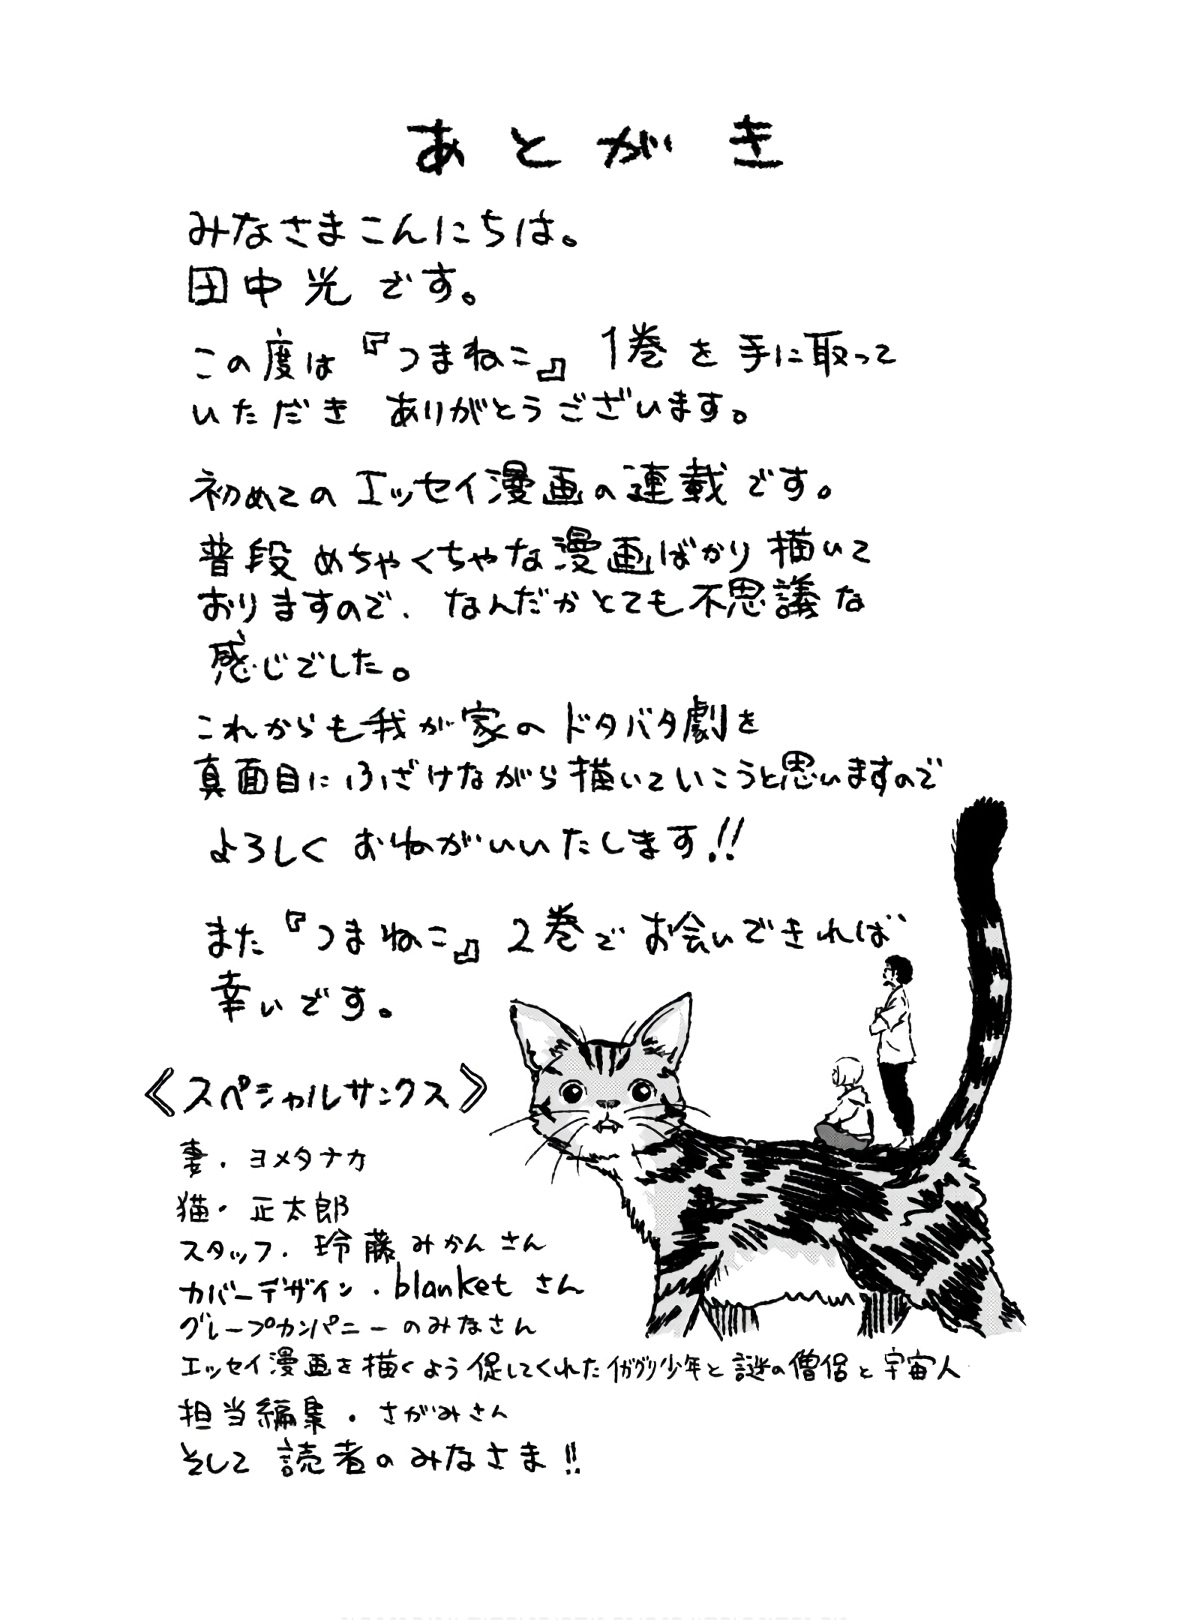 あとがき
みなさまこんにちは。
田中光です。
この度は『つまねこ』1巻を手に取って
いただき ありがとうございます。
初めてのエッセイ漫画の連載です。
普段めちゃくちゃな漫画ばかり描いて
おりますので、なんだかとても不思議な
感じでした。
これからも我が家のドタバタ劇を
真面目にふざけながら描いていこうと思いますので
よろしくおねがいいたします!!
また『つまねこ』2巻でお会いできれば
幸いです。
《スペシャルサンクス》
妻・ヨメタナカ
猫・正太郎
スタッフ・玲藤みかんさん
カバーデザイン・blanketさん
グレープカンパニーのみなさん
エッセイ漫画を描くよう促してくれたイガグリ少年と謎の僧侶と宇宙人
担当編集・さがみさん
そして 読者のみなさま!!